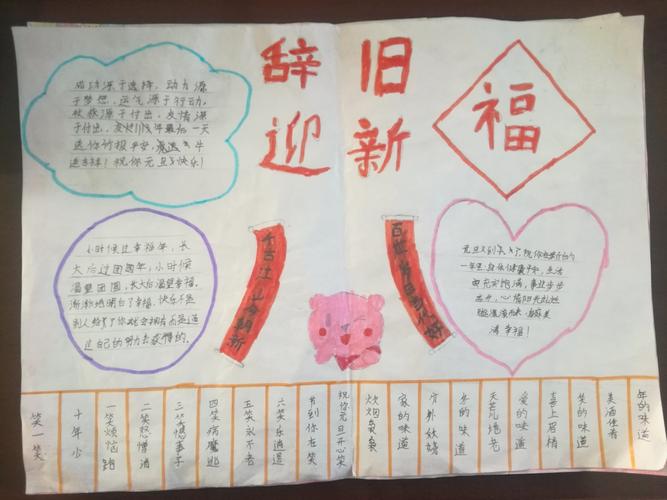 辞旧
迎新
福
成功源于选择，动力源
于梦想，运气源于行动，
收获源于付出，友情源
于付出，
年最后一天
送你竹报平安，
牛
进吉祥！祝你元旦了快乐！
小时候过幸福年，长
大后过团圆年，小时候
温馨团圆，长大后温馨幸福，
渐渐地明白了幸福，快乐不是
别人给予了你就会拥有而是通
过自己的努力去获得的。
千古江山今朝新
百世岁月当代好
元旦又到来了，祝你在新的
一年里，身体健康平安，生活
更充实饱满，事业步步
高升，心情阳光灿烂
财源滚滚而来，
满幸福！
笑一笑
十年少
一笑烦恼跑
二笑怒憎消
三笑憾事子
四笑病魔逃
五笑永不老
六笑乐逍遥
在笑
祝你元旦开心笑
炊烟袅袅
家的味道
冬的味道
爱的味道
喜上眉梢
笑的味道
年的味道